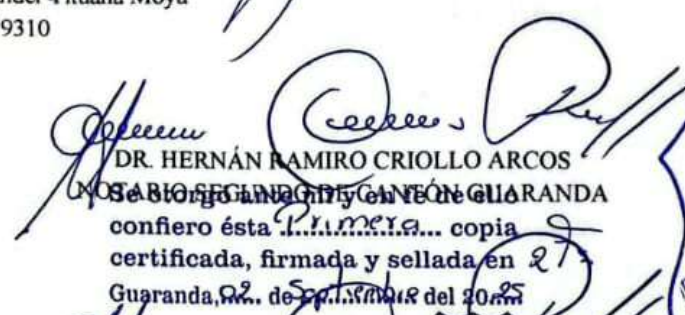 9310
DR. HERNÁN RAMIRO CRIOLLO ARCOS
NOTARIO SEGUNDO DE CANTÓN GUARANDA
Se otorgó ante mi y en fe de ello
confiero ésta Primera copia
certificada, firmada y sellada en 2
Guaranda, 02 de Septiembre del 2025